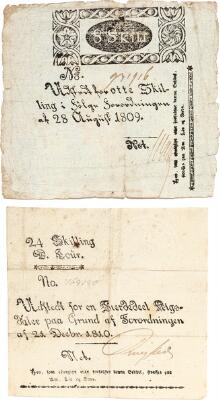 8 Skill
No.
Udstædt for otte Skil-
ling i Følge Forordningen
af 28 August 1809.
Not.
Hvo, som eftergiør eller forfalsker denne Seddel,
straffes paa Ære, Liv og Gods.
24 Skilling
D. Cour.
No.
Udstedt for en Fierdedeel Rigs-
daler paa Grund af Forordningen
af 21. Decbr. 1810.
N. A.
Hvo, som eftergiør eller forfalsker denne Seddel, straffes paa
Ære, Liv og Gods.